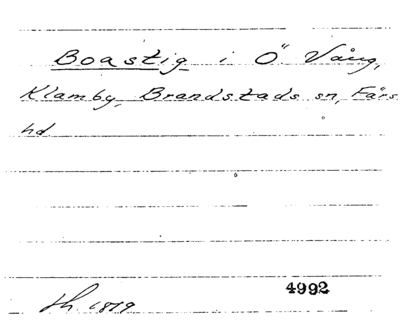 Boastig i Ö Vång,
Klamby, Brandstads sn, Färs
hd
4992
1879